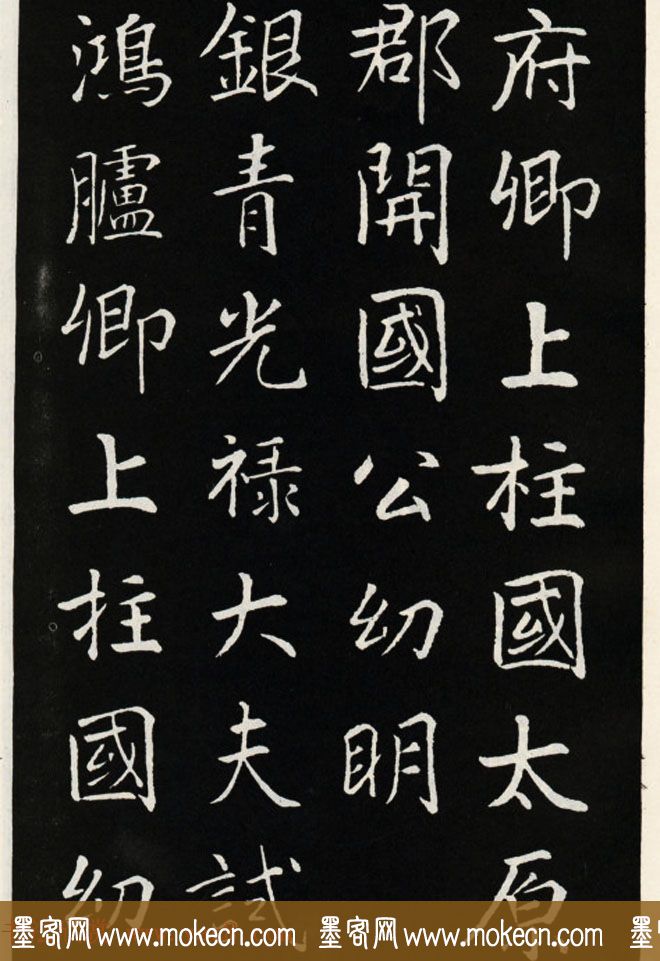 府卿上柱國太原
郡開國公幼明
銀青光禄大夫試
鴻臚卿上柱國幼
墨客网 www.mokecn.com 墨客网 www.mokecn.com